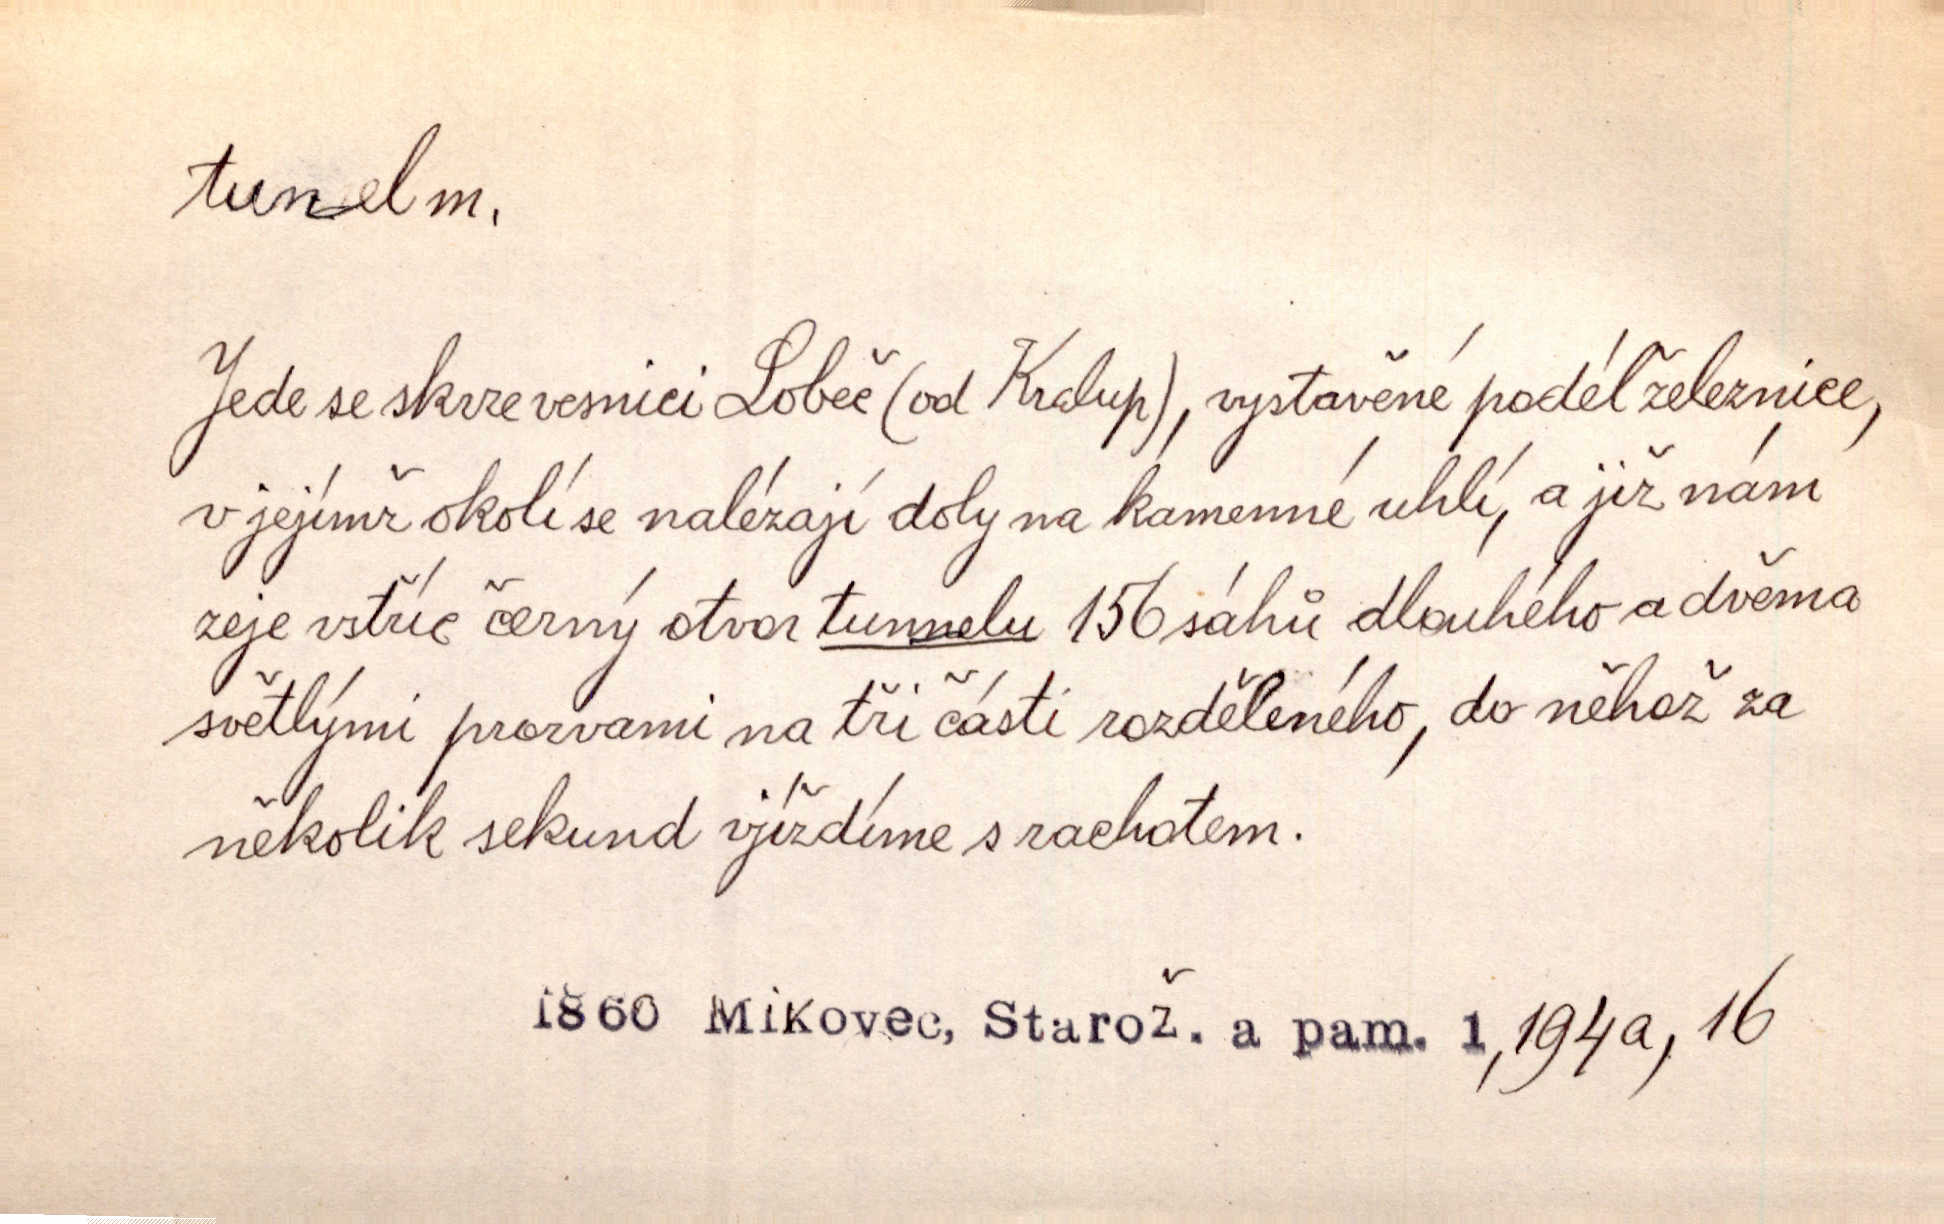 tunel m.
Jede se skrze vesnici Lobeč (od Kralup), vystavěné podél železnice,
v jejímž okolí se nalézají doly na kamenné uhlí, a již nám
zeje vstříc černý otvor tunnelu 156 sáhů dlouhého a dvěma
světlými prorvami na tři části rozděleného, do něhož za
několik sekund vjíždíme s rachotem.
1860 Mikovec, Starož. a pam. 1, 194a, 16